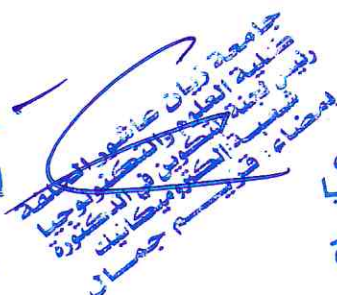 جامعة زيان عاشور الجلفة
كلية العلوم والتكنولوجيا
رئيس لجنة التكوين في الدكتورة
شعبة الكتروميكانيك
بمضاء: قديم جمال